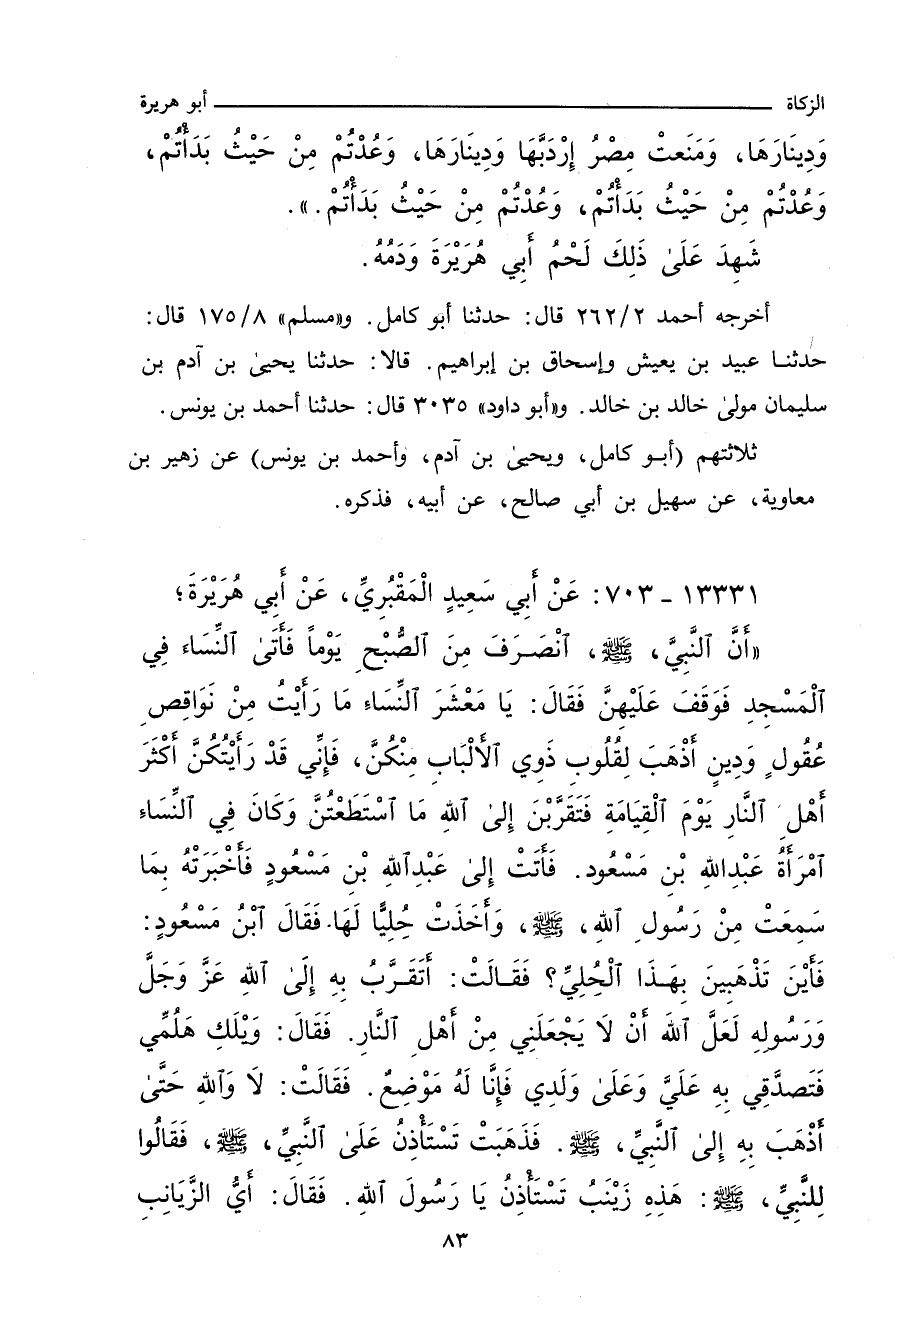 الزكاة ــــــــــــــــــــ أبو هريرة
وَدِينَارَهَا، وَمَنَعَتْ مِصْرُ إِرْدَبَّهَا وَدِينَارَهَا، وَعُدْتُمْ مِنْ حَيْثُ بَدَأْتُمْ،
وَعُدْتُمْ مِنْ حَيْثُ بَدَأْتُمْ، وَعُدْتُمْ مِنْ حَيْثُ بَدَأْتُمْ.».
شَهِدَ عَلَىٰ ذٰلِكَ لَحْمُ أَبِي هُرَيْرَةَ وَدَمُهُ.
أخرجه أحمد ٢/٢٦٢ قال: حدثنا أبو كامل. و«مسلم» ٨/١٧٥ قال:
حدثنا عبيد بن يعيش وإسحاق بن إبراهيم. قالا: حدثنا يحيىٰ بن آدم بن
سليمان مولىٰ خالد بن خالد. و«أبو داود» ٣٠٣٥ قال: حدثنا أحمد بن يونس.
ثلاثتهم (أبو كامل، ويحيىٰ بن آدم، وأحمد بن يونس) عن زهير بن
معاوية، عن سهيل بن أبي صالح، عن أبيه، فذكره.
١٣٣٣١ - ٧٠٣: عَنْ أَبِي سَعِيدٍ الْمَقْبُرِيِّ، عَنْ أَبِي هُرَيْرَةَ؛
«أَنَّ ٱلنَّبِيَّ، ﷺ، ٱنْصَرَفَ مِنَ ٱلصُّبْحِ يَوْماً فَأَتَىٰ ٱلنِّسَاءَ فِي
ٱلْمَسْجِدِ فَوَقَفَ عَلَيْهِنَّ فَقَالَ: يَا مَعْشَرَ ٱلنِّسَاءِ مَا رَأَيْتُ مِنْ نَوَاقِصِ
عُقُولٍ وَدِينٍ أَذْهَبَ لِقُلُوبِ ذَوِي ٱلأَلْبَابِ مِنْكُنَّ، فَإِنِّي قَدْ رَأَيْتُكُنَّ أَكْثَرَ
أَهْلِ ٱلنَّارِ يَوْمَ ٱلْقِيَامَةِ فَتَقَرَّبْنَ إِلىٰ ٱللهِ مَا ٱسْتَطَعْتُنَّ وَكَانَ فِي ٱلنِّسَاءِ
ٱمْرَأَةُ عَبْدِاللهِ بْنِ مَسْعُود. فَأَتَتْ إِلىٰ عَبْدِٱللهِ بْنِ مَسْعُودٍ فَأَخْبَرَتْهُ بِمَا
سَمِعَتْ مِنْ رَسُولِ ٱللهِ، ﷺ، وَأَخَذَتْ حُلِيًّا لَهَا. فَقَالَ ٱبْنُ مَسْعُودٍ:
فَأَيْنَ تَذْهَبِينَ بِهَذَا ٱلْحُلِيِّ؟ فَقَالَتْ: أَتَقَرَّبُ بِهِ إِلَىٰ ٱللهِ عَزَّ وَجَلَّ
وَرَسُولِهِ لَعَلَّ ٱللهَ أَنْ لَا يَجْعَلَنِي مِنْ أَهْلِ ٱلنَّارِ. فَقَالَ: وَيْلَكِ هَلُمِّي
فَتَصَدَّقِي بِهِ عَلَيَّ وَعَلَىٰ وَلَدِي فَإِنَّا لَهُ مَوْضِعٌ. فَقَالَتْ: لَا وَٱللهِ حَتَّىٰ
أَذْهَبَ بِهِ إِلىٰ ٱلنَّبِيِّ، ﷺ. فَذَهَبَتْ تَسْتَأْذِنُ عَلَىٰ ٱلنَّبِيِّ، ﷺ، فَقَالُوا
لِلنَّبِيِّ، ﷺ: هَذِهِ زَيْنَبُ تَسْتَأْذِنُ يَا رَسُولَ ٱللهِ. فَقَالَ: أَيُّ الزَّيَانِبِ
٨٣